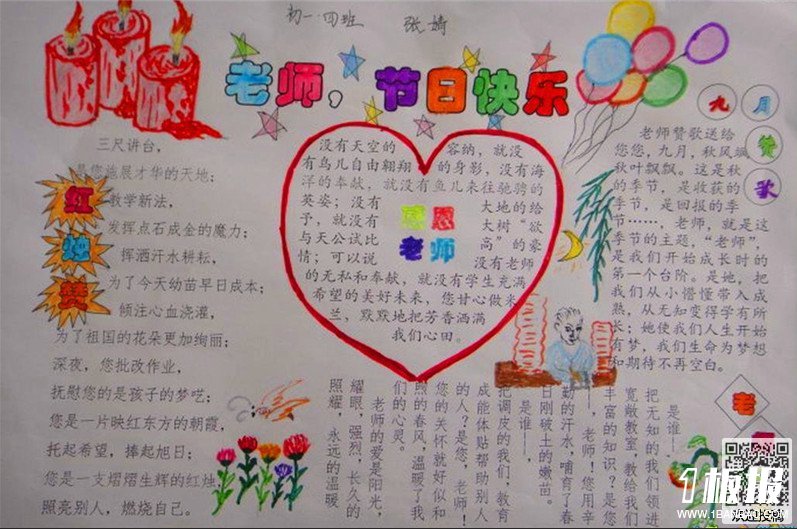 初一·四班 张婧
老师，节日快乐
红烛赞
三尺讲台，
是您施展才华的天地；
教学新法，
发挥点石成金的魔力；
挥洒汗水耕耘，
为了今天幼苗早日成本；
倾注心血浇灌，
为了祖国的花朵更加绚丽；
深夜，您批改作业，
抚慰您的是孩子的梦呓；
您是一片映红东方的朝霞，
托起希望，捧起旭日；
您是一支熠熠生辉的红烛，
照亮别人，燃烧自己。
感恩
老师
没有天空的容纳，就没
有鸟儿自由翱翔的身影，没有海
洋的奉献，就没有鱼儿来往驰骋的
英姿；没有大地的给
予，就没有大树“欲
与天公试比高”的豪
情；可以说没有老师
的无私和奉献，就没有学生充满
希望的美好未来，您甘心做米
兰，默默地把芳香洒满
我们心田。
九月赞歌
老师赞歌送给
您您，九月，秋风飒
秋叶飘飘。这是秋
的季节，是收获的
季节，是回报的季
节……，老师，就是这
季节的主题，“老师”，
是我们开始成长时的
第一个台阶。是她，把
我们从小懵懂带入成
熟，从无知变得学有所
长；她使我们人生开始
有梦，我们生命为梦想
和期待不再空白。
老
是谁——，
把无知的我们领进
宽敞教室，教给我们
丰富的知识？是您
——，老师！您用辛
勤的汗水，哺育了春
日刚破土的嫩苗。
是谁——，
把调皮的我们，教育
成能体贴帮助别人
的人？是您，老师！
您的关怀就好似和
煦的春风，温暖了我
们的心灵。
老师的爱是阳光，
耀眼，强烈，长久的
照耀，永远的温暖
1板报
WWW.1BANBAO.COM